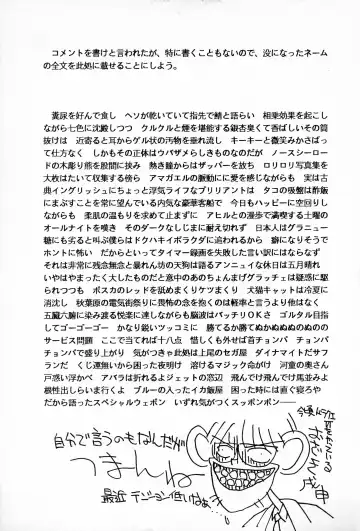 コメントを書けと言われたが、特に書くこともないので、没になったネーム
の全文を此処に載せることにしよう。
糞尿を好んで食し　ヘソが乾いていて指先で鯖と語らい　相乗効果を起こし
ながら七色に沈殿しつつ　クルクルと煙を堪能する銀杏臭くて香ばしいその間
抜けは　近寄ると耳からゲル状の汚物を垂れ流し　キーキーと微笑みかさばっ
て仕方なく　しかもその正体はウバザメらしきものなのだが　ノースシーロー
ドの木彫り熊の股間に挟み　熱き鐘からはザッパーを放ち　ロリロリ写真集を
大枚はたいて収集する傍ら　アマガエルの脈動に愛を感じながらも　実は古
典イングリッシュにちょっと浮気ライフなブリリアントは　タコの吸盤は酢飯
にまぶすことを常に望んでいる内気な豪華客船で　今日もハッピーに空回りし
ながらも　柔肌の温もりを求めて止まずに　アヒルとの漫歩で満喫する土曜の
オールナイトを嘆き　そのダークなしじまに耐え切れず　日本人はグラニュー
糖にも劣ると叫ぶ僕らはドクハキイボラクダに追われるから　癖になりそうで
ホントに怖い　だからといってタイマー録画を失敗した言い訳にはならなず
それは非常に残念無念と暴れん坊の天狗は語るアンニュイな休日は五月晴れ
いやはやまったく大したものだと意中のあのちょんまげグラッチェは疑惑に駆
られつつも　ポスカのレッドを舐めまくりケツまくり　犬猫キャットは冷夏に
消沈し　秋葉原の電気街祭りに畏怖の念を抱くのは軽率と言うより他はなく
五臓六腑に染み渡る悦楽に達しながらも脳波はバッチリＯＫさ　ゴルタル目指
してゴーゴーゴー　かなり鋭いツッコミに　勝てるか勝てぬかぬぬのぬのの
サービス問題　ここで当てれば十八点　惜しくも外せば首チョンパ　チョンパ
チョンパで盛り上がり　気がつきゃ此処は上尾のセガ屋　ダイナマイトだサフ
ランだ　くじ運無いから困った夜明け　溶けるマジック命がけ　河童の奥さん
戸惑い浮かべ　アバラが折れるよジェットの窓辺　飛んでけ飛んでけ馬並みよ
根性出しらいま行くよ　ブルーの入ったイカ飯屋　困った時には直ぐ寝ろや
だから語ったスペシャルウェポン　いずれ気がつくスッポンポン――
自分で言うのもなんだが
つまんね
最近テンション低いなぁ…